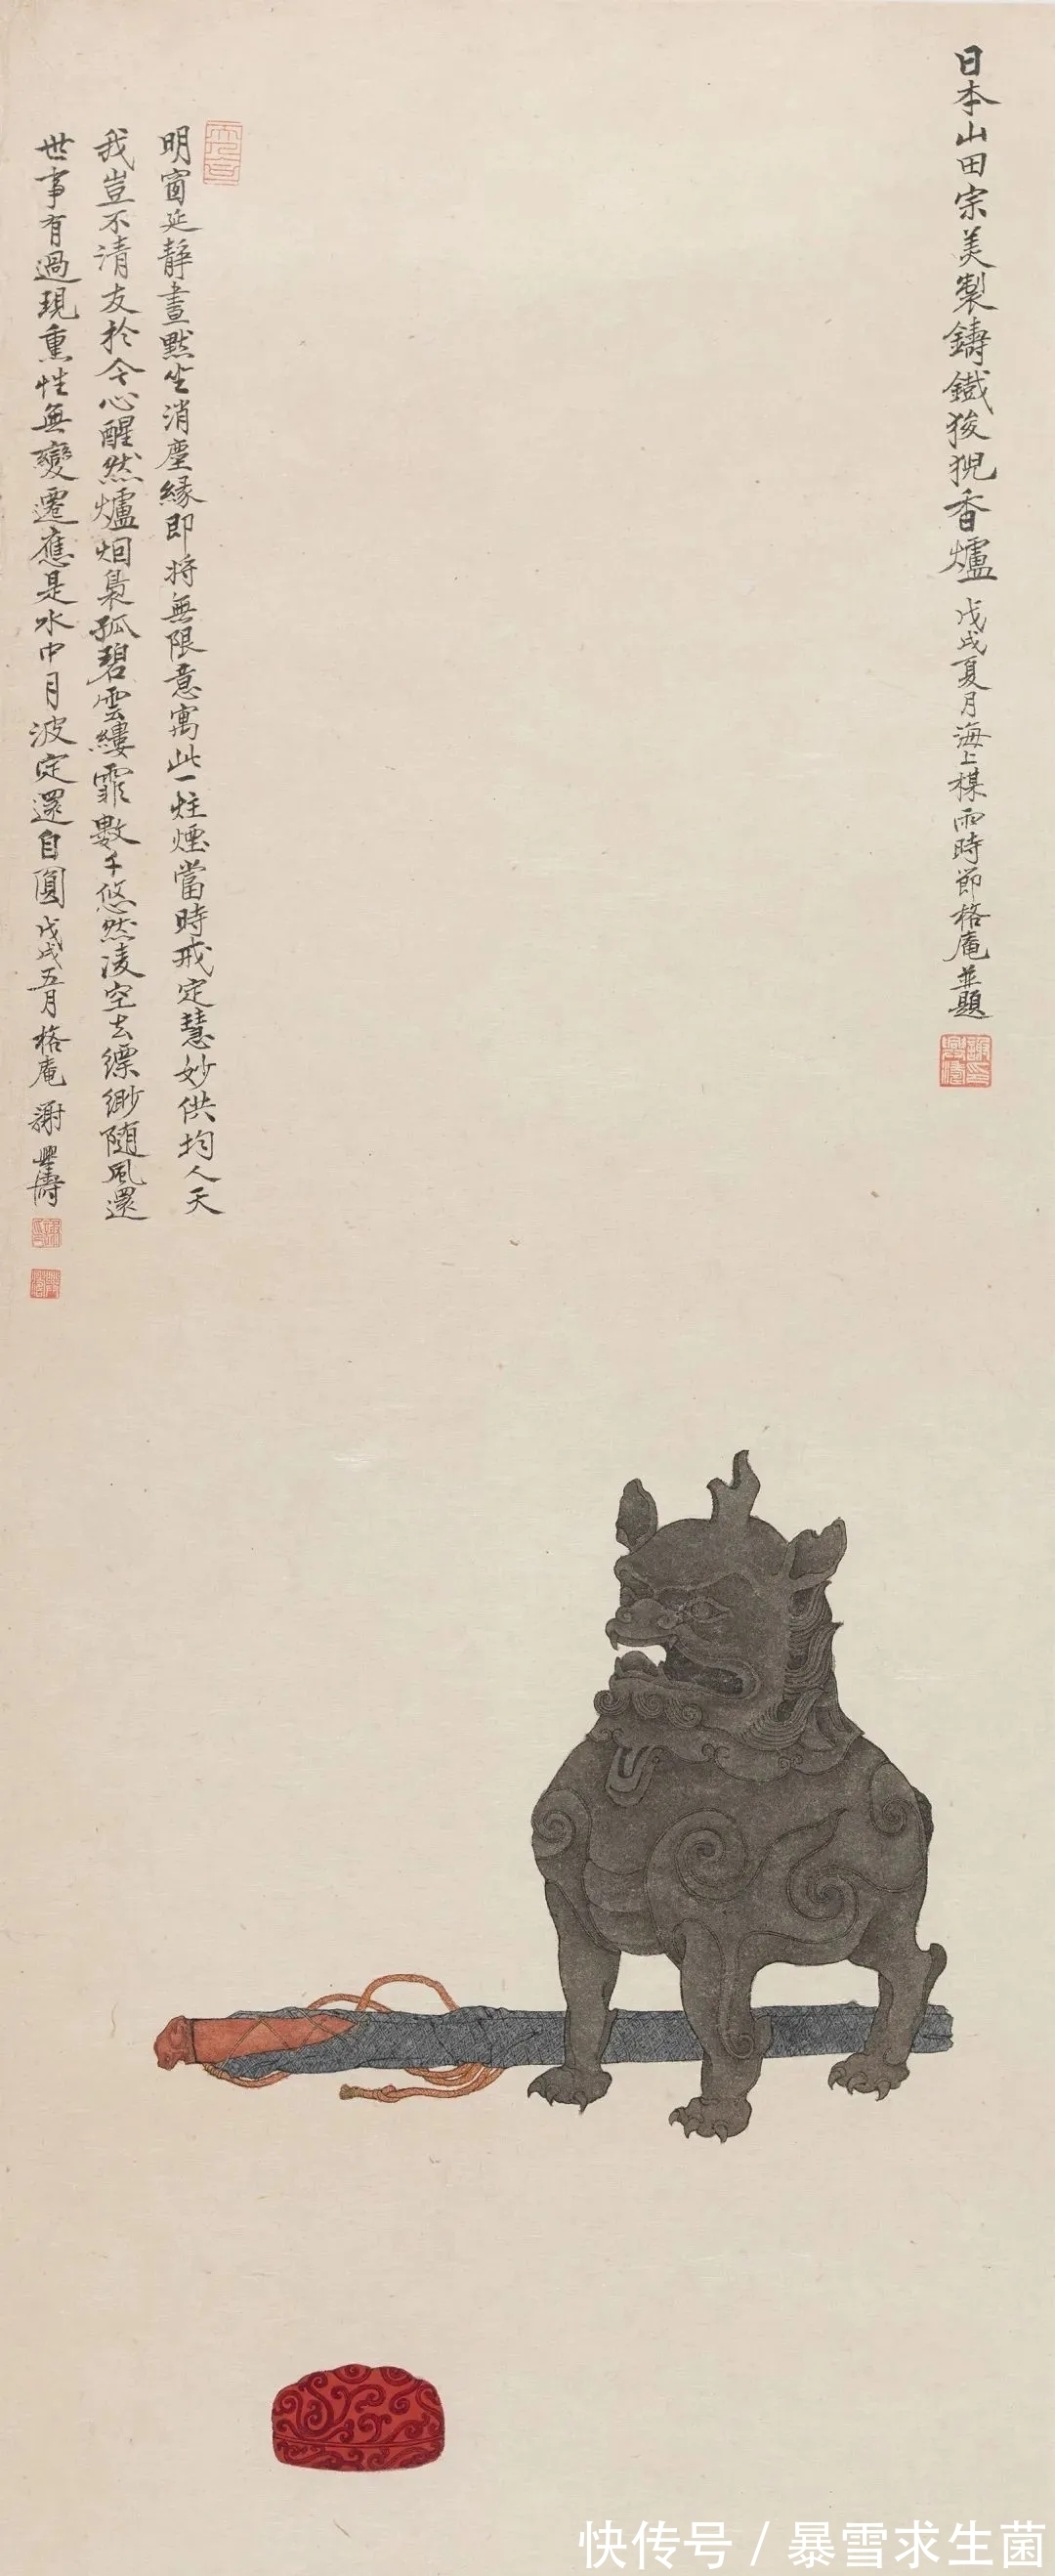 日本山田宗美製鑄鐵狻猊香爐 戊戌夏月海上楳雨時節格庵並題
明窗延靜晝默坐消塵緣即將無限意寓此一炷煙當時戒定慧妙供均人天
我豈不清友於今心醒然爐烟裊孤碧雲縷霏數千悠然凌空去縹緲随風還
世事有過現熏性無變遷應是水中月波定還自圓戊戌五月格庵謝豐濤
快传号 / 暴雪求生菌